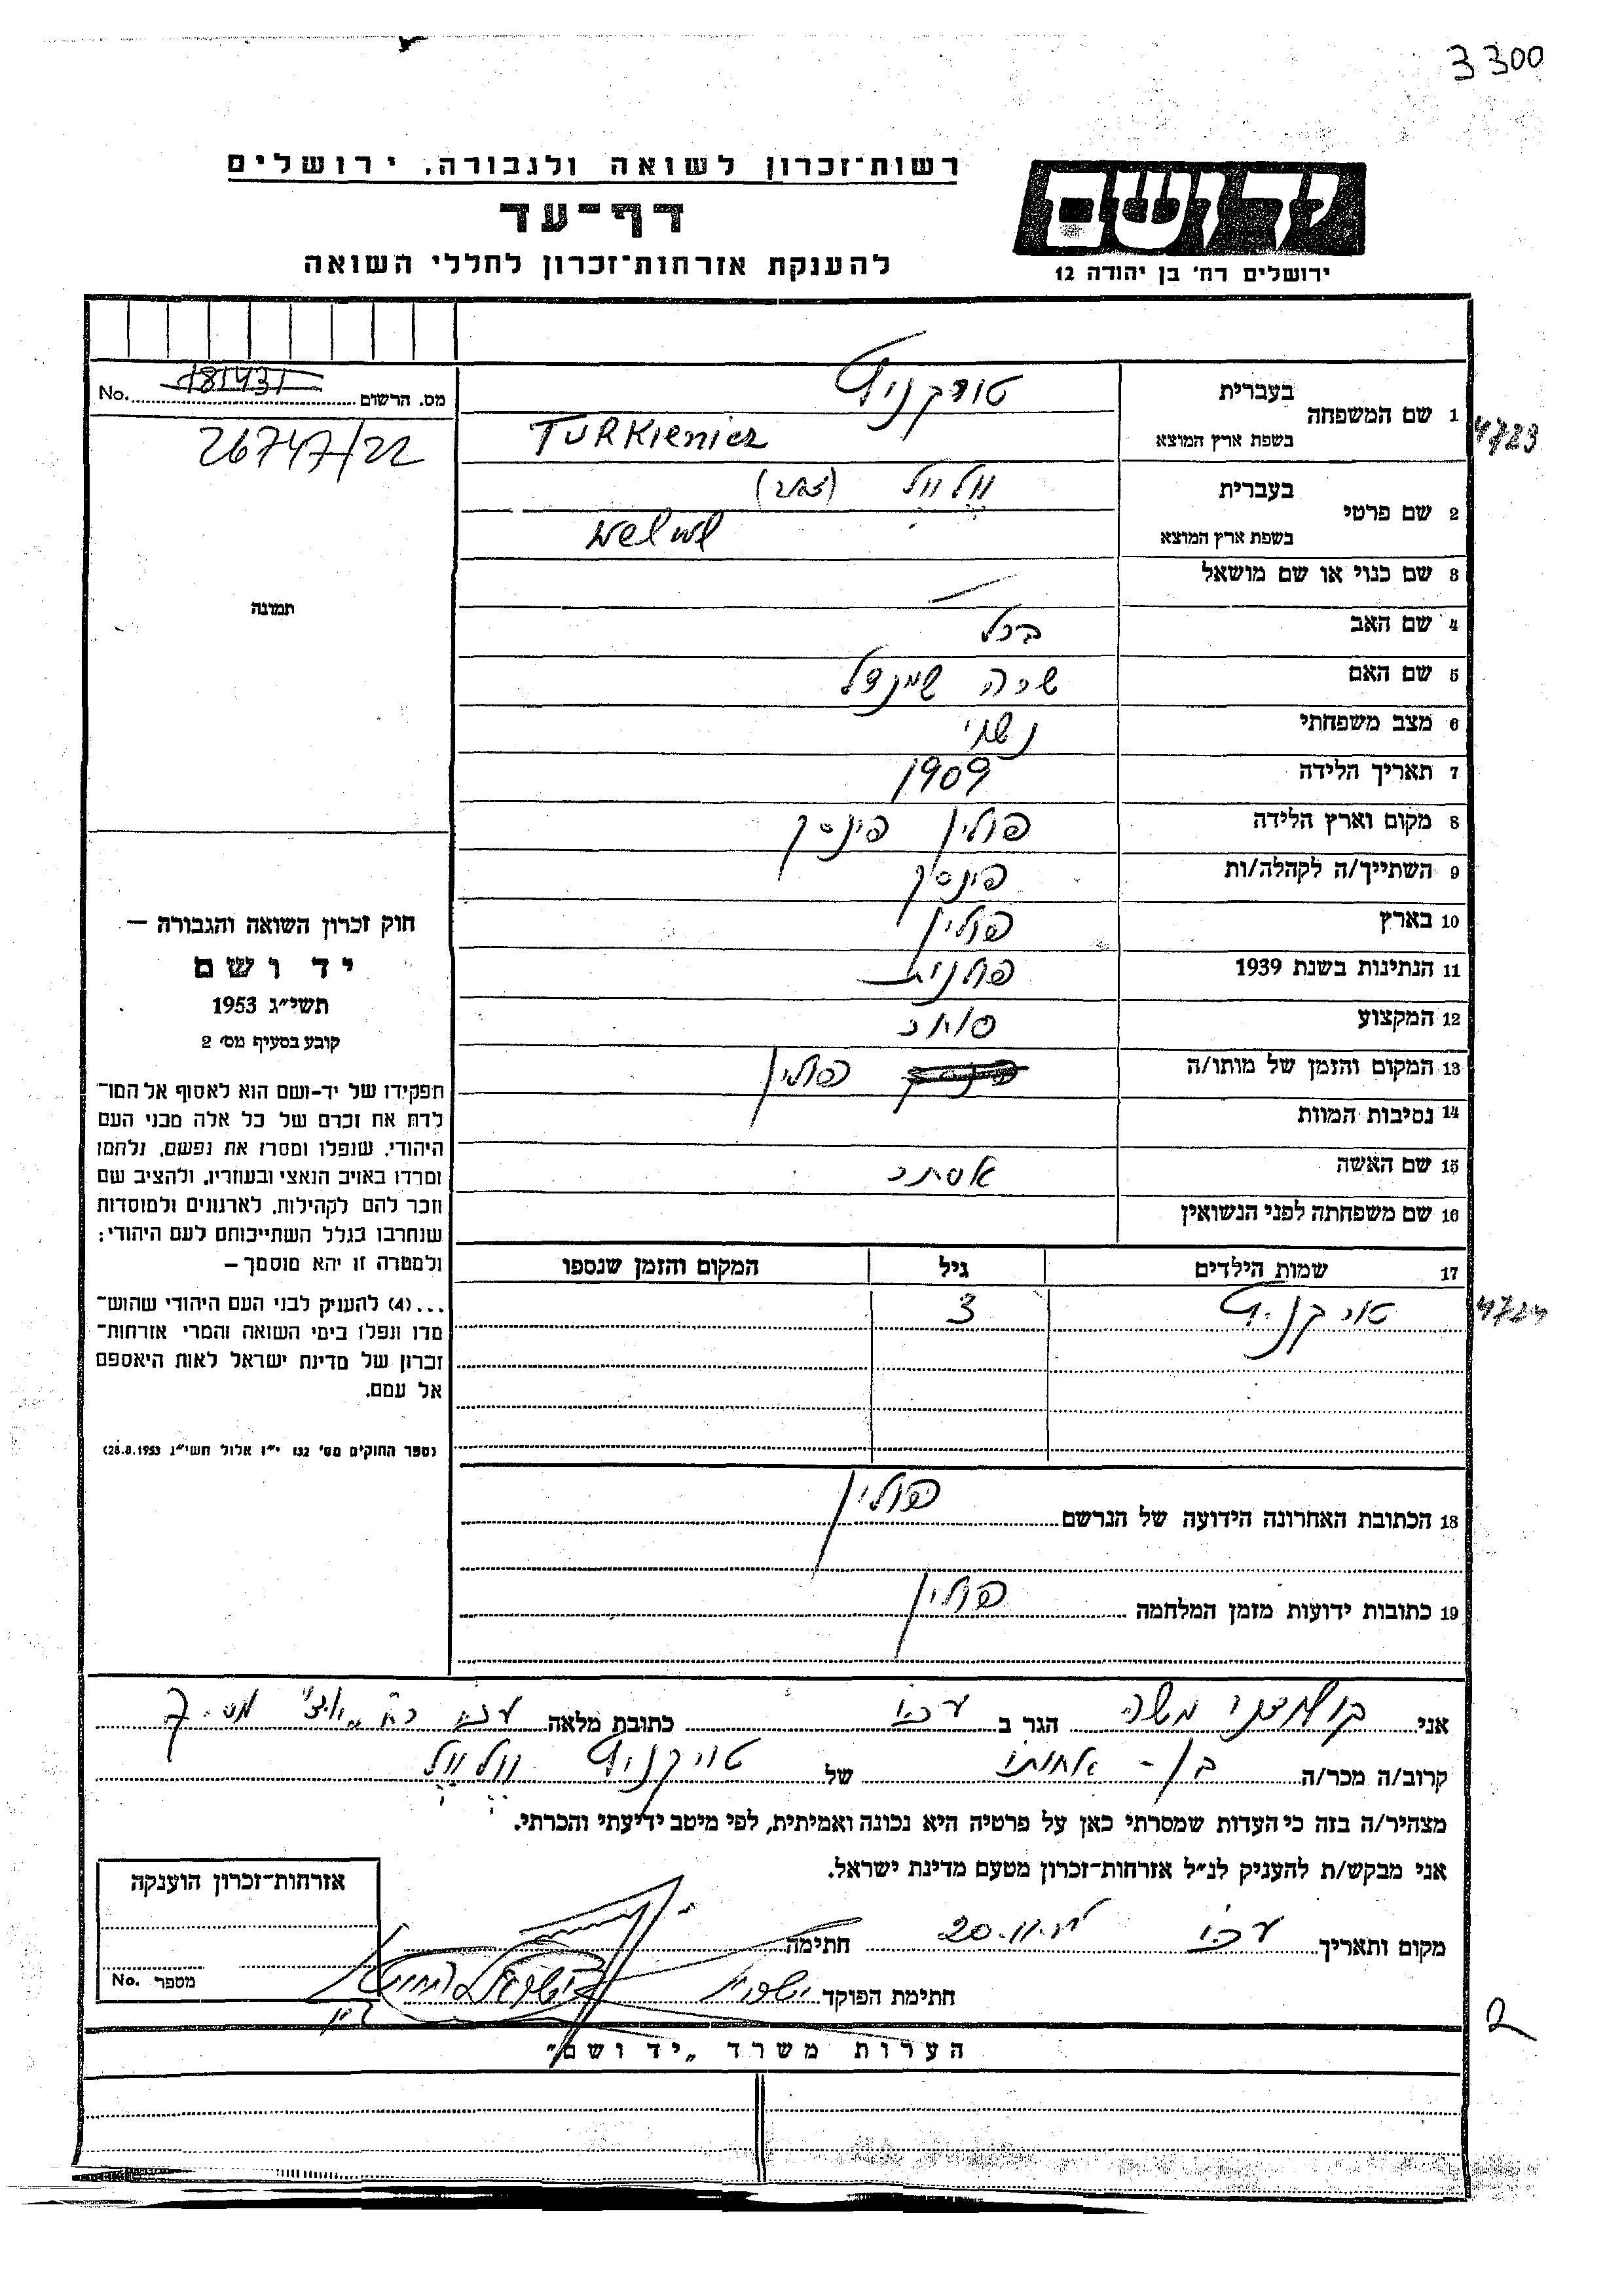 3300
רשות־זכרון לשואה ולגבורה, ירושלים
יד ושם
דף־עד
להענקת אזרחות־זכרון לחללי השואה
ירושלים רח' בן יהודה 12
מס. הרשום No. 181431
26747/22
תמונה
1 שם המשפחה בעברית
4723
בשפת ארץ המוצא TURKieniez
2 שם פרטי בעברית וולוול
בשפת ארץ המוצא Welwl
3 שם כנוי או שם מושאל —
4 שם האב ברל
5 שם האם שרה שיינדל
6 מצב משפחתי נשוי
7 תאריך הלידה 1909
8 מקום וארץ הלידה פולין פינסק
9 השתייך/ה לקהלה/ות פינסק
10 בארץ פולין
11 הנתינות בשנת 1939 פולנית
12 המקצוע סוחר
13 המקום והזמן של מותו/ה פולין
14 נסיבות המוות
15 שם האשה אסתר
16 שם משפחתה לפני הנשואין
17 שמות הילדים גיל המקום והזמן שנספו
3
4724
18 הכתובת האחרונה הידועה של הנרשם פולין
19 כתובות ידועות מזמן המלחמה פולין
חוק זכרון השואה והגבורה —
יד ושם
תשי"ג 1953
קובע בסעיף מס' 2
תפקידו של יד-ושם הוא לאסוף אל המו־
לדת את זכרם של כל אלה מבני העם
היהודי, שנפלו ומסרו את נפשם, נלחמו
ומרדו באויב הנאצי ובעוזריו, ולהציב שם
וזכר להם לקהילות, לארגונים ולמוסדות
שנחרבו בגלל השתייכותם לעם היהודי;
ולמטרה זו יהא מוסמך —
...(4) להעניק לבני העם היהודי שהוש־
מדו ונפלו בימי השואה והמרי אזרחות־
זכרון של מדינת ישראל לאות היאספם
אל עמם.
(ספר החוקים מס' 132 י"ז אלול תשי"ג 28.8.1953)
אני משה הגר ב עכו כתובת מלאה עכו
קרוב/ה מכר/ה בן - אחותו של וולוול
מצהיר/ה בזה כי העדות שמסרתי כאן על פרטיה היא נכונה ואמיתית, לפי מיטב ידיעתי והכרתי.
אני מבקש/ת להעניק לנ"ל אזרחות־זכרון מטעם מדינת ישראל.
מקום ותאריך עכו 20.11. חתימה
חתימת הפוקד
אזרחות־זכרון הוענקה
מספר No.
הערות משרד „יד ושם"